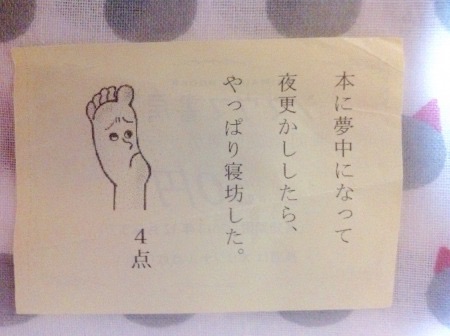 本に夢中になって
夜更かししたら、
やっぱり寝坊した。
4点